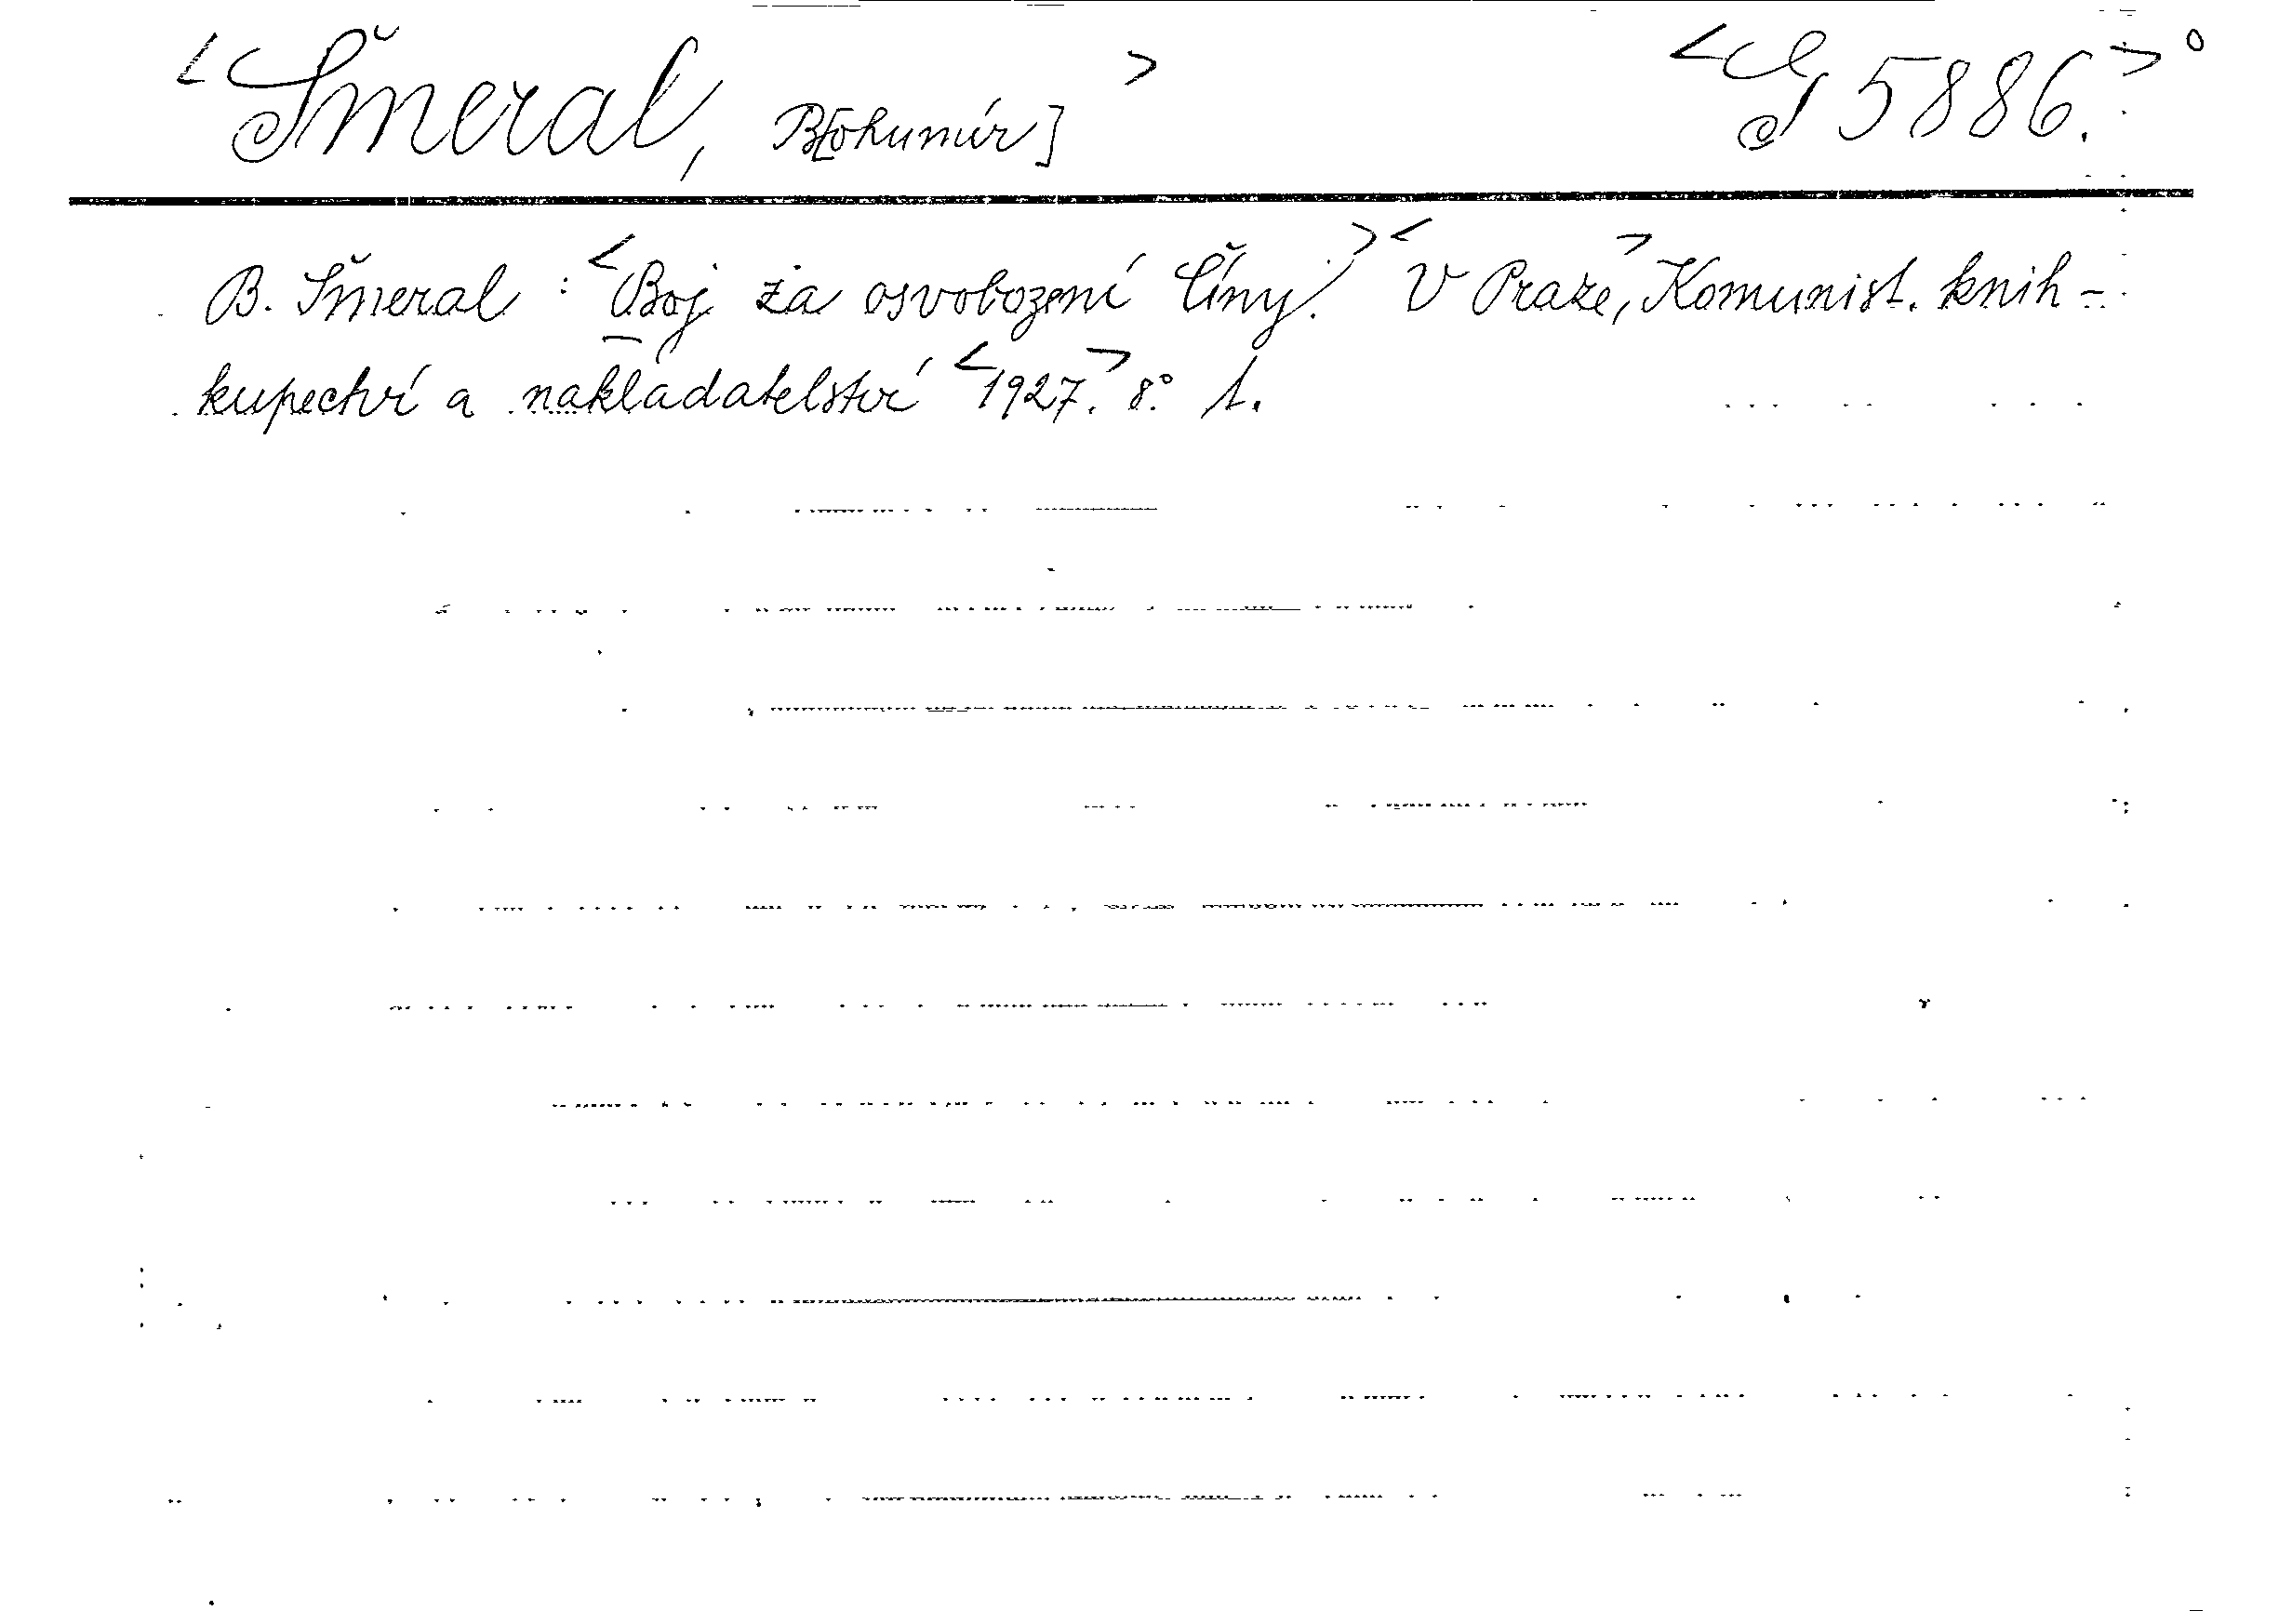 <Šmeral, B[ohumír]> <G 5886.>°
B. Šmeral: <Boj za osvobození Číny.> <V Praze,> Komunist. knih-
kupectví a nakladatelství <1927.> 8.° 1.